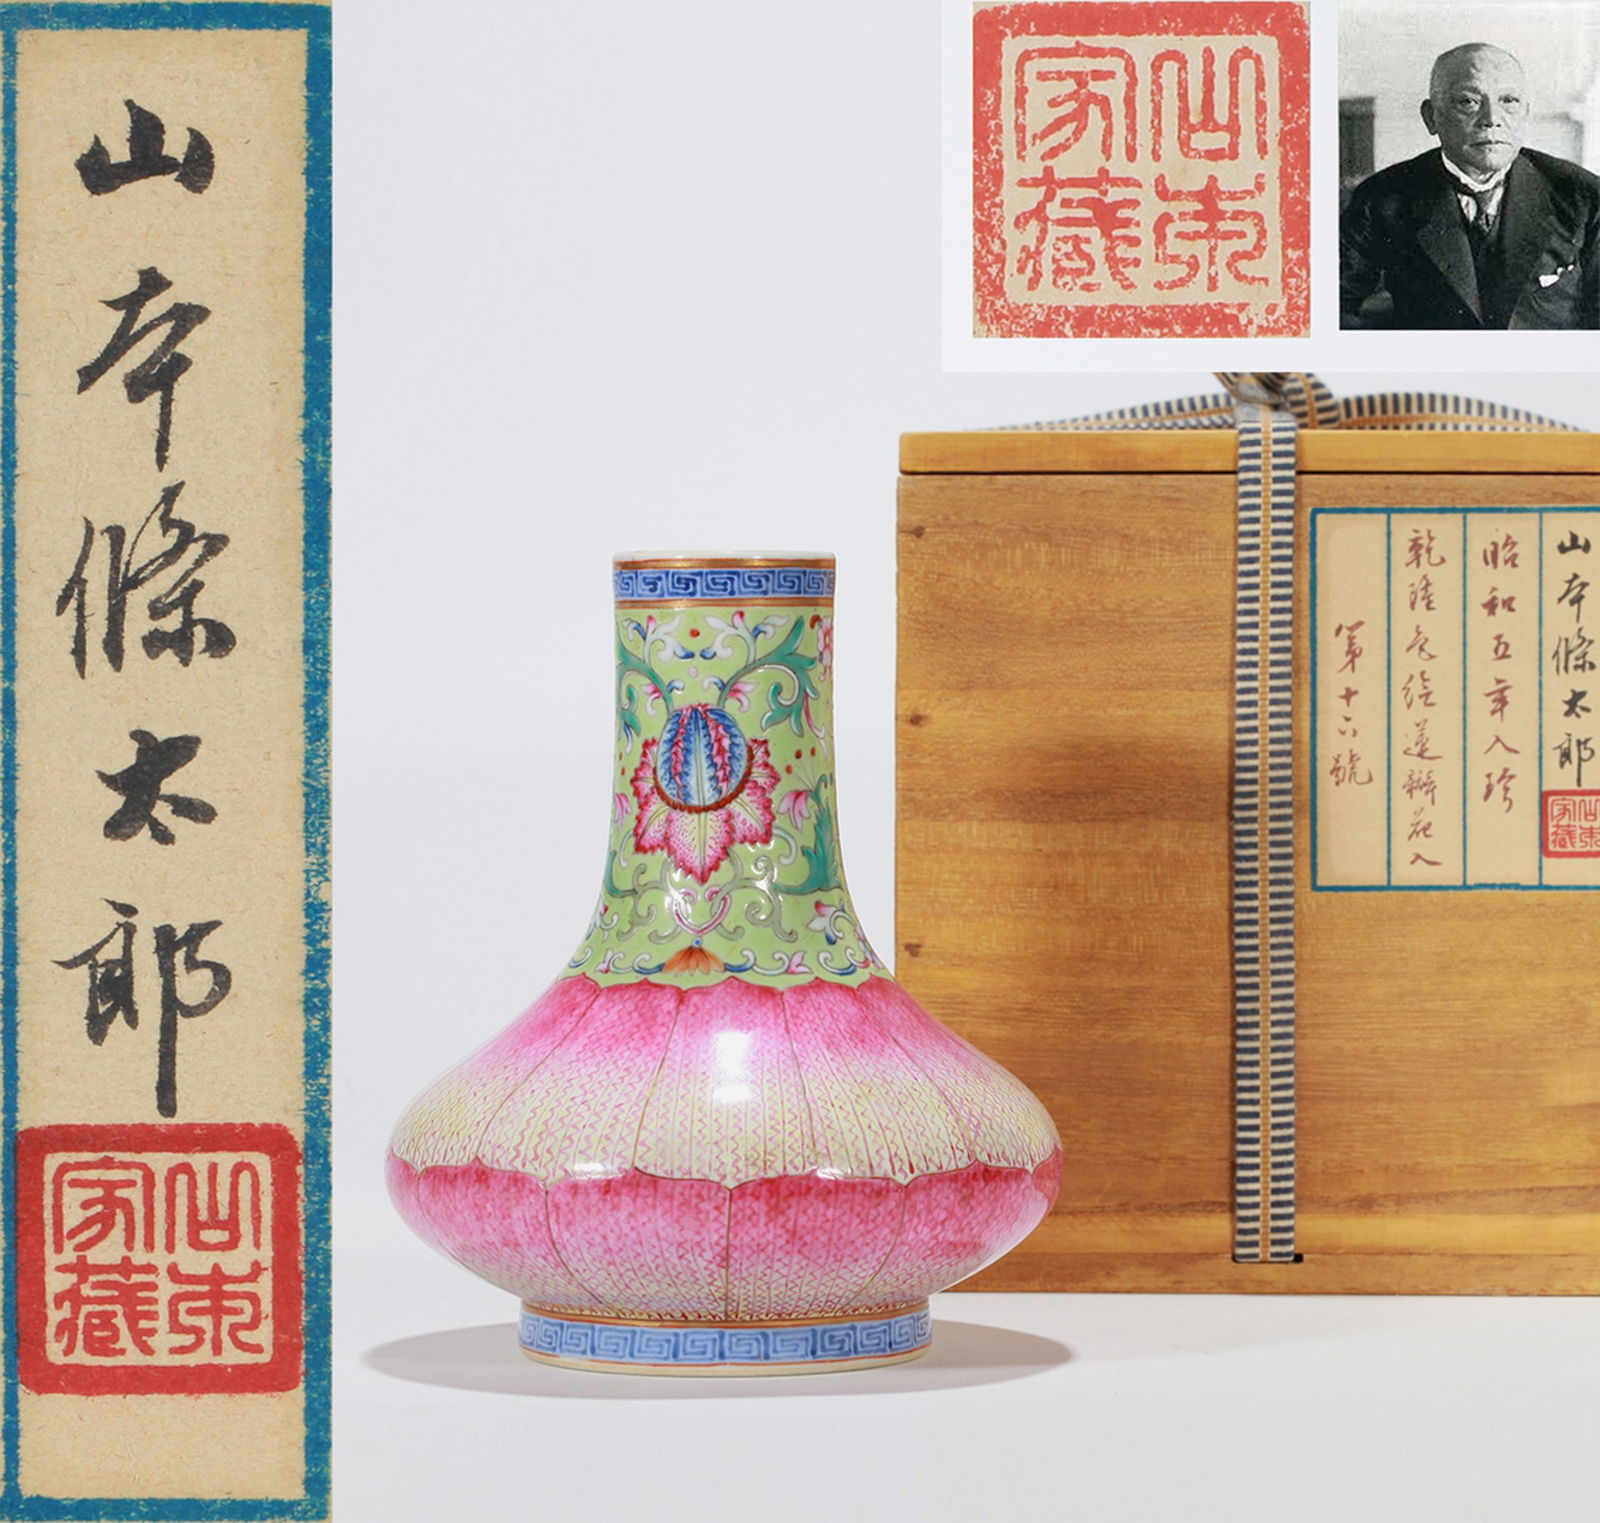 山本條太郎
山
家藏
山
家藏
山本條太郎
山
家藏
昭和五年入珍
乾隆色絵蓮瓣花入
第十六號